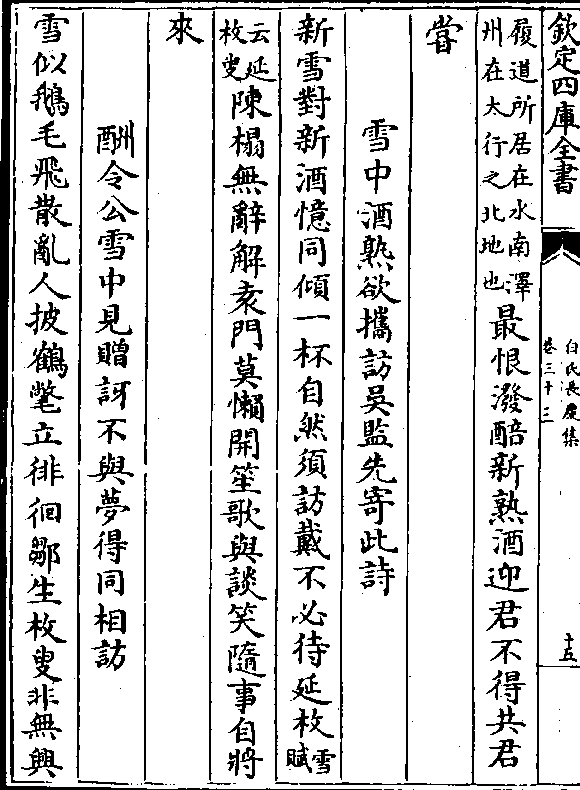 欽定四庫全書
白氏長慶集
卷三十三
十五
履道所居在水南澤
州在太行之北地也
最恨潑醅新熟酒迎君不得共君
嘗
雪中酒熟欲攜訪吳監先寄此詩
新雪對新酒憶同傾一杯自然須訪戴不必待延枚
雪賦
云延
枚叟
陳榻無辭解袁門莫懶開笙歌與談笑隨事自將
來
酬令公雪中見贈訝不與夢得同相訪
雪似鵝毛飛散亂人披鶴氅立徘徊鄒生枚叟非無興